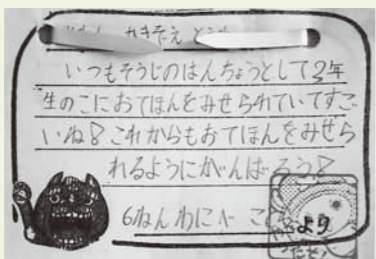 かきぞえ
いつもそうじのはんちょうとして2年
生のこにおてほんをみせられていてすご
いね！これからもおてほんをみせら
れるようにがんばろう！
6ねん わにべ こ より